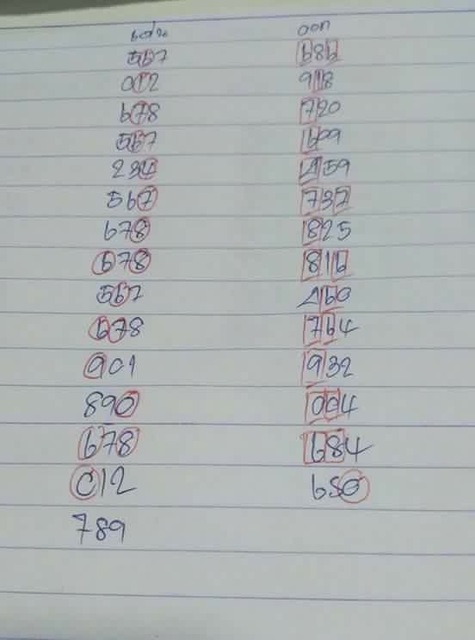 เด่น ออก
567 686
012 918
678 720
567
234 459
567 737
678 825
678 816
567 460
678 764
901 932
890 004
678 684
012
789